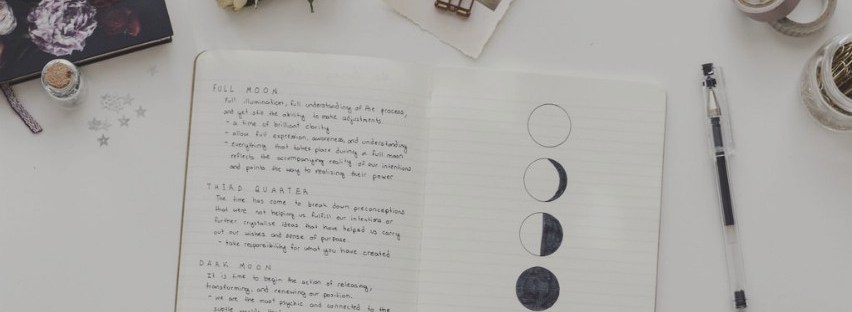 FULL MOON
Full illumination, full understanding of the process,
and yet still the ability to make adjustments.
- a time of brilliant clarity
- allow full expression, awareness, and understanding
- everything that takes place during a full moon
reflects the accompanying reality of our intentions
and points the way to realizing their power
THIRD QUARTER
The time has come to break down preconceptions
that were not helping us fulfill our intentions or
further crystalise ideas that have helped us carry
out our wishes and sense of purpose.
- take responsibility for what you have created
DARK MOON
It is time to begin the action of releasing,
transforming, and renewing our position.
- we are the most psychic and connected to the
subtle